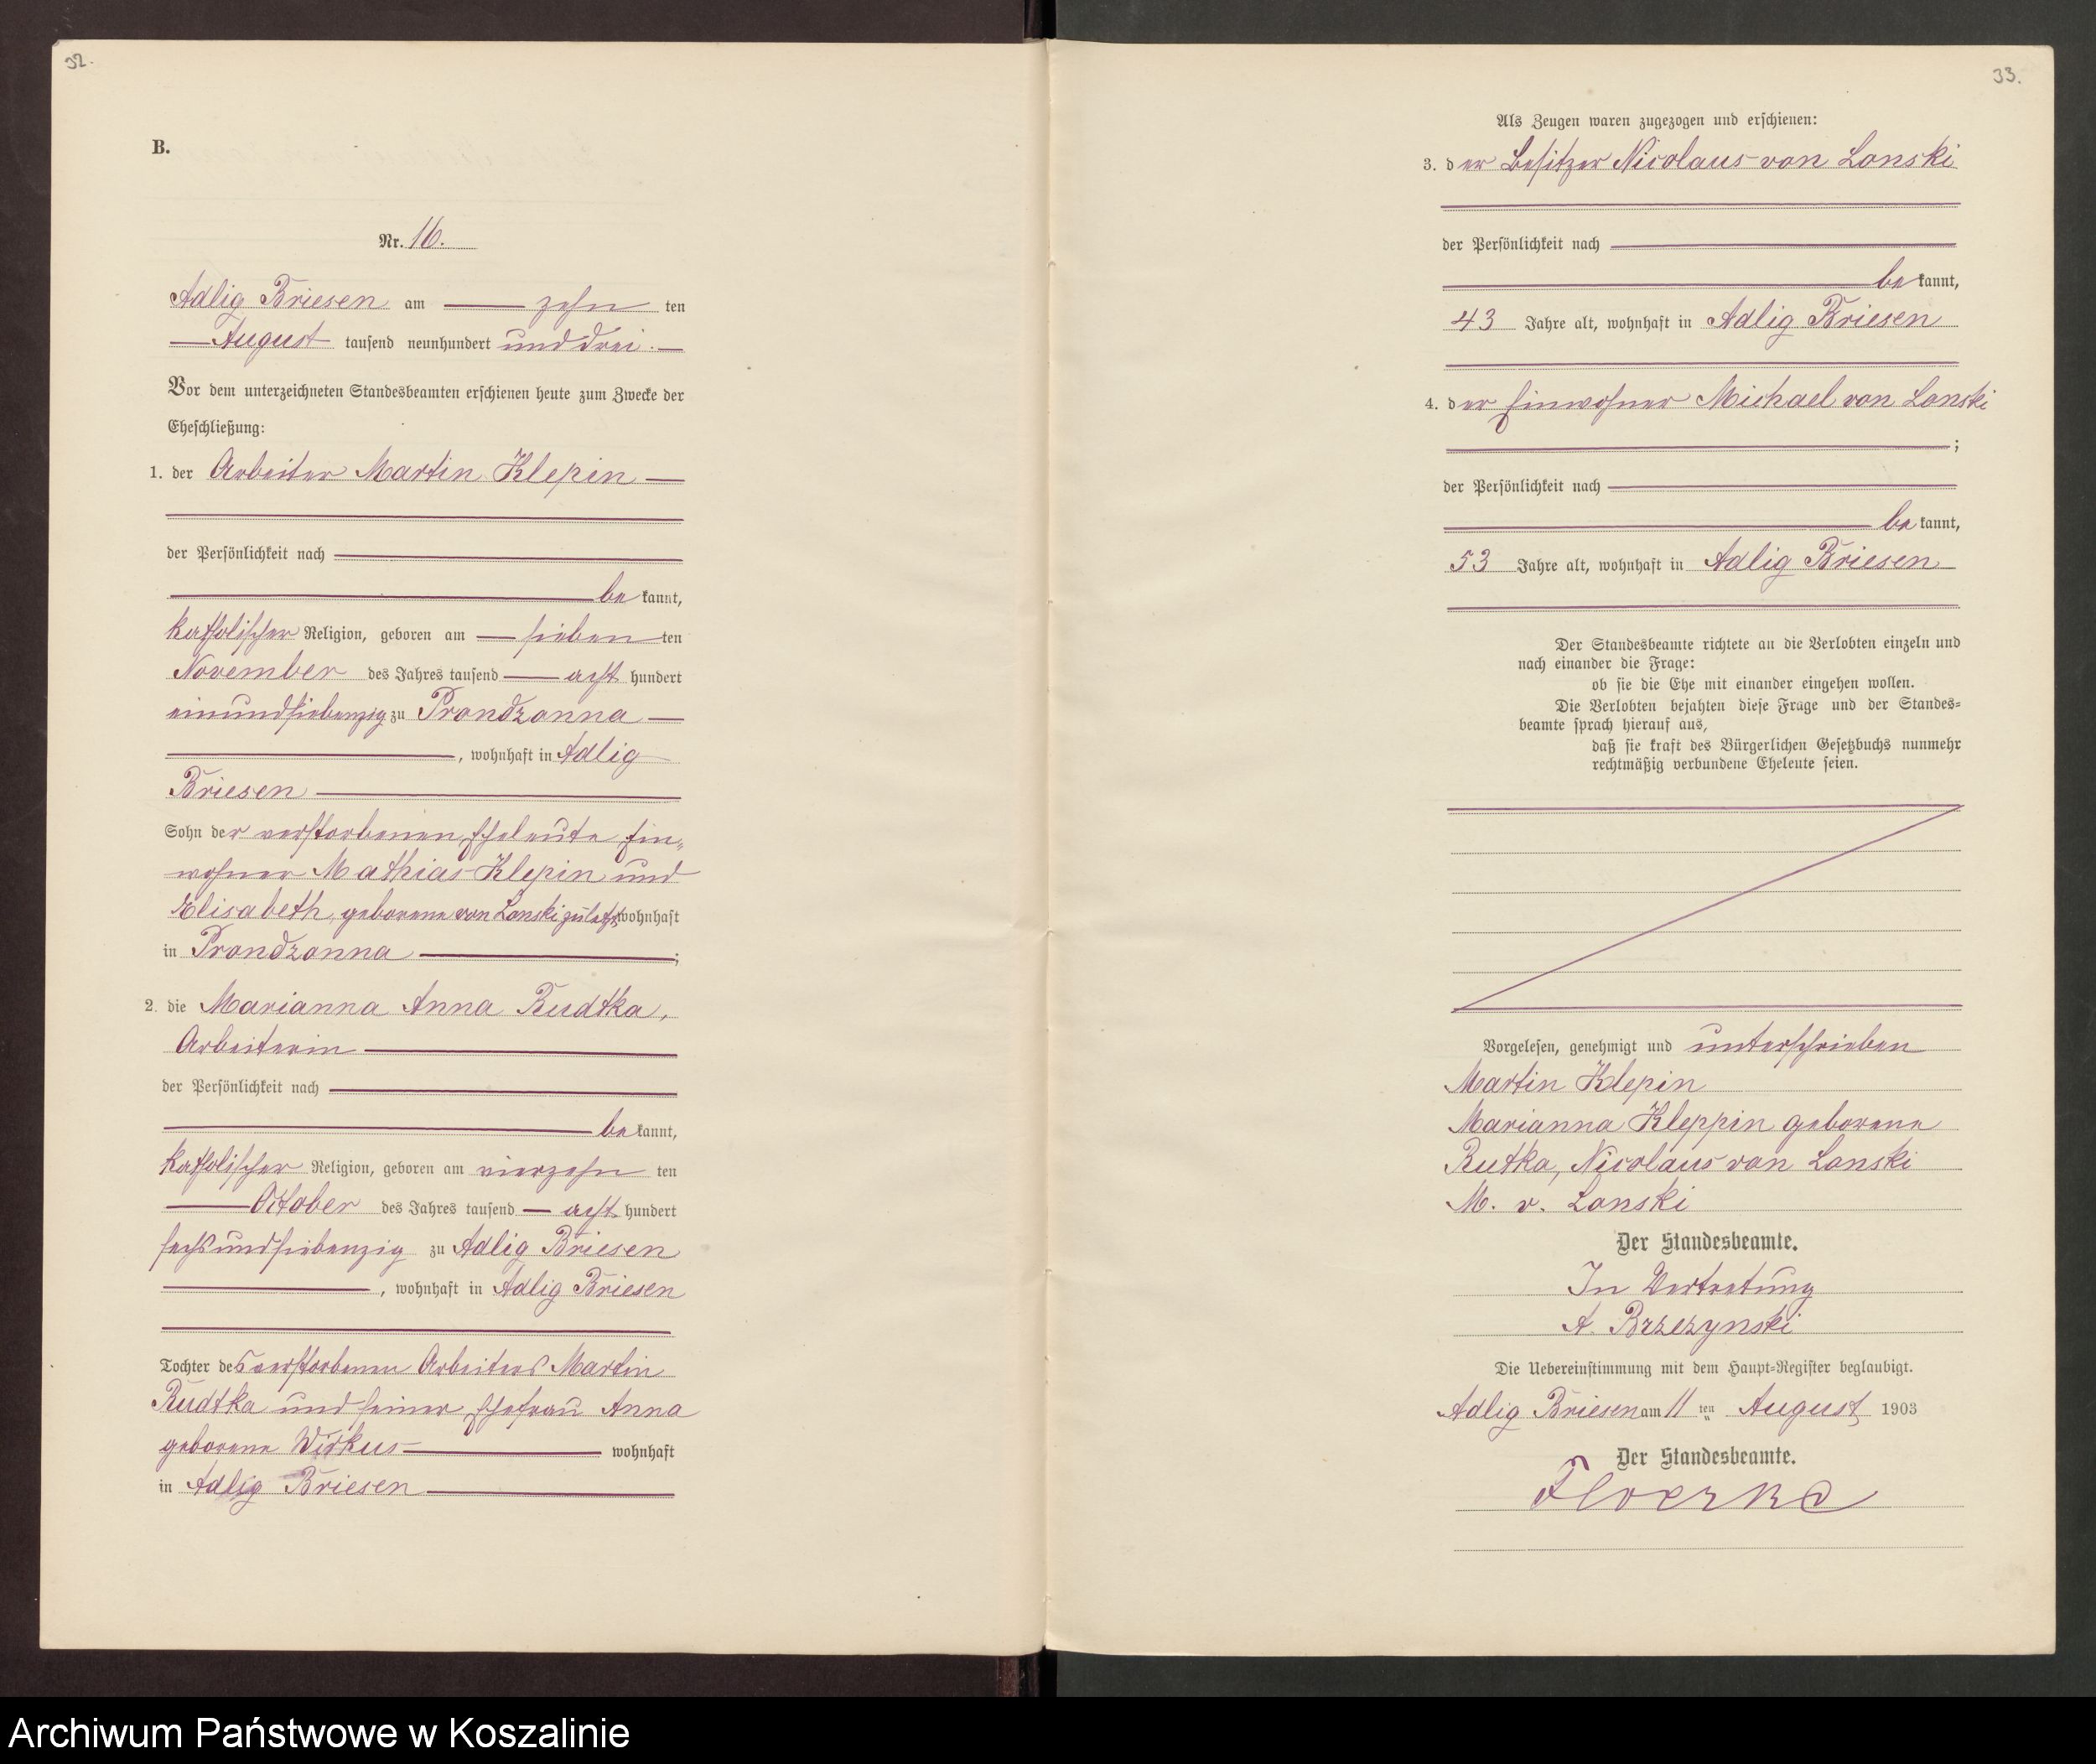 32.
B.
Nr. 16.
Adlig Briesen am zehn ten
August tausend neunhundert und drei.
Vor dem unterzeichneten Standesbeamten erschienen heute zum Zwecke der
Eheschließung:
1. der Arbeiter Martin Klepin
der Persönlichkeit nach
be kannt,
katholischer Religion, geboren am sieben ten
November des Jahres tausend acht hundert
einundsiebenzig zu Prondzonna
, wohnhaft in Adlig
Briesen
Sohn der verstorbenen Eheleute Ein„
wohner Mathias Klepin und
Elisabeth, geborene von Lonski zuletzt wohnhaft
in Prondzonna ;
2. die Marianna Anna Rudtka,
Arbeiterin
der Persönlichkeit nach
be kannt,
katholischer Religion, geboren am vierzehn ten
October des Jahres tausend acht hundert
sechsundsiebenzig zu Adlig Briesen
, wohnhaft in Adlig Briesen
Tochter des verstorbenen Arbeiters Martin
Rudtka und seiner Ehefrau Anna
geborene Wirkus wohnhaft
in Adlig Briesen
33.
Als Zeugen waren zugezogen und erschienen:
3. der Besitzer Nicolaus von Lonski
der Persönlichkeit nach
be kannt,
43 Jahre alt, wohnhaft in Adlig Briesen
4. der Einwohner Michael von Lonski
;
der Persönlichkeit nach
be kannt,
53 Jahre alt, wohnhaft in Adlig Briesen
Der Standesbeamte richtete an die Verlobten einzeln und
nach einander die Frage:
ob sie die Ehe mit einander eingehen wollen.
Die Verlobten bejahten diese Frage und der Standes=
beamte sprach hierauf aus,
daß sie kraft des Bürgerlichen Gesetzbuchs nunmehr
rechtmäßig verbundene Eheleute seien.
Vorgelesen, genehmigt und unterschrieben
Martin Klepin
Marianna Kleppin geborene
Rutka, Nicolaus von Lonski
M. v. Lonski
Der Standesbeamte.
In Vertretung
A. Brzezynski
Die Uebereinstimmung mit dem Haupt=Register beglaubigt.
Adlig Briesen am 11 ten August 1903
Der Standesbeamte.
Archiwum Państwowe w Koszalinie